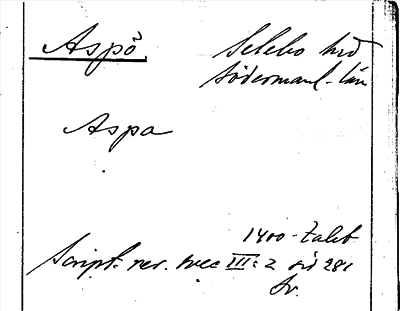 Aspö
Selebo hd
Södermanl. län
Aspa
1400-talet
Script. rer. svec III: 2 sid 281
Sv.